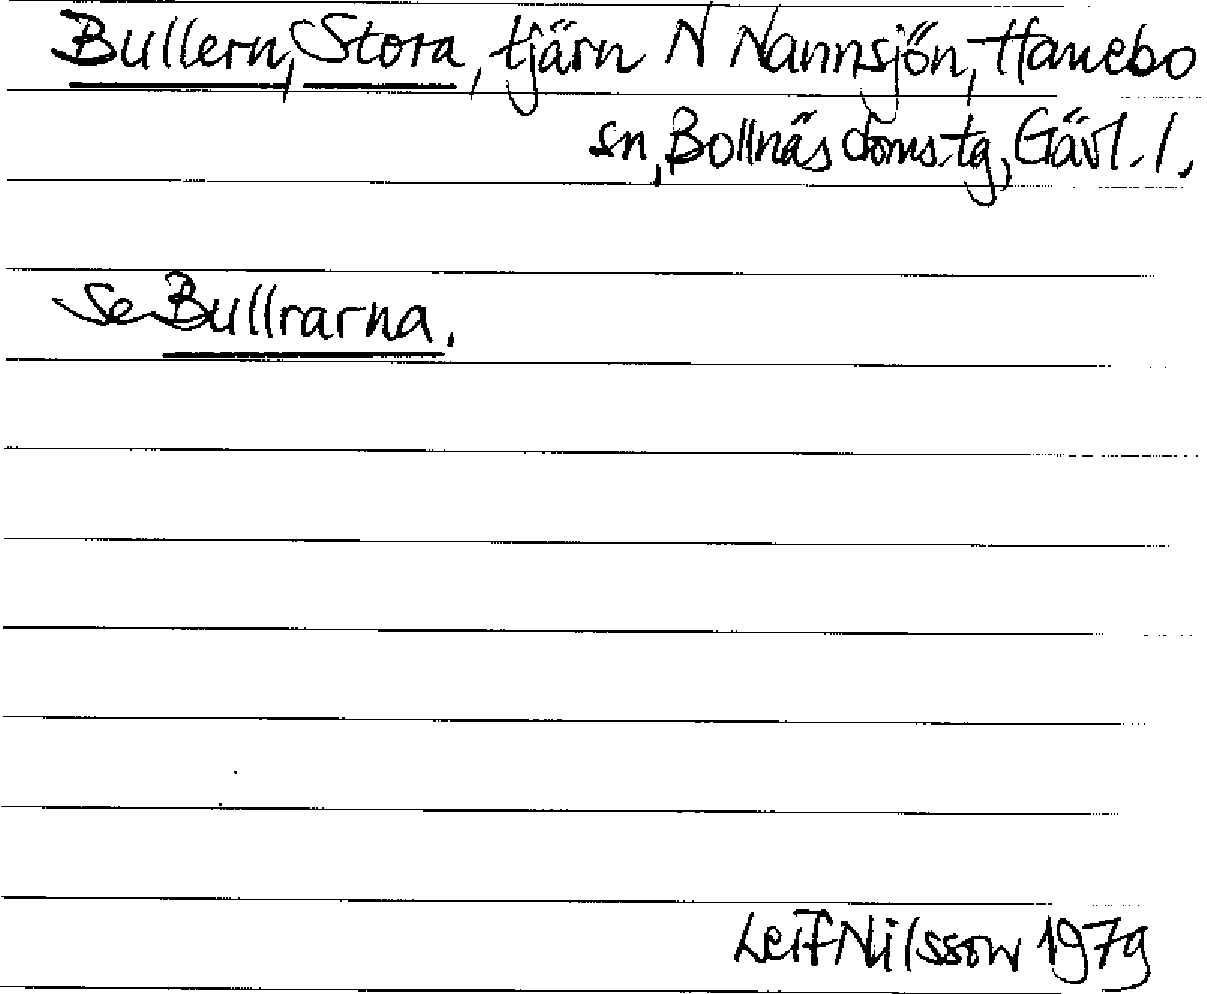 Bullern, Stora, tjärn N Nannsjön, Hanebo
sn, Bollnäs doms.tg, Gävl. l.
Se Bullrarna.
Leif Nilsson 1979